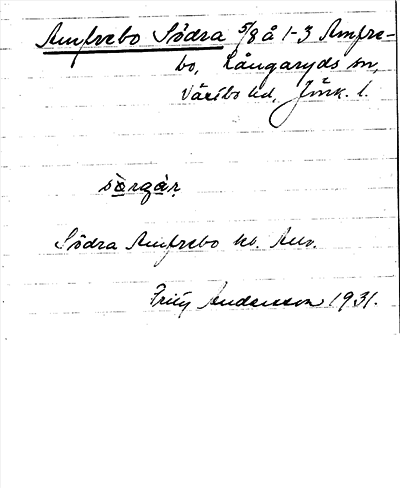 Amfrebo Södra 5/8 å 1-3 Amfre-
bo, Långaryds sn,
Västbo hd, Jönk. l.
sö̀rgàṛ
Södra Amfrebo
Fritz Andersson 1931.